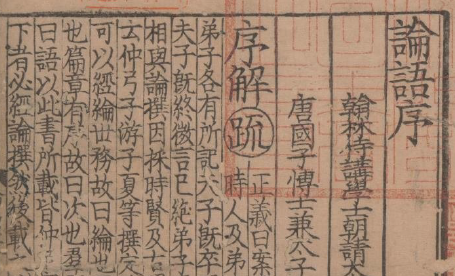 論語序
翰林侍講學士朝請大
唐國子博士兼太子
序解疏
正義曰案
時人及弟
弟子各有所記夫子既卒
夫子既終微言已絶弟子
相與論撰因採時賢及古
云仲弓子游子夏等撰定
可以經綸世務故曰綸也
也篇章有序故曰次也羣
曰語以此書所載皆仲尼
下者必經論撰然後載之